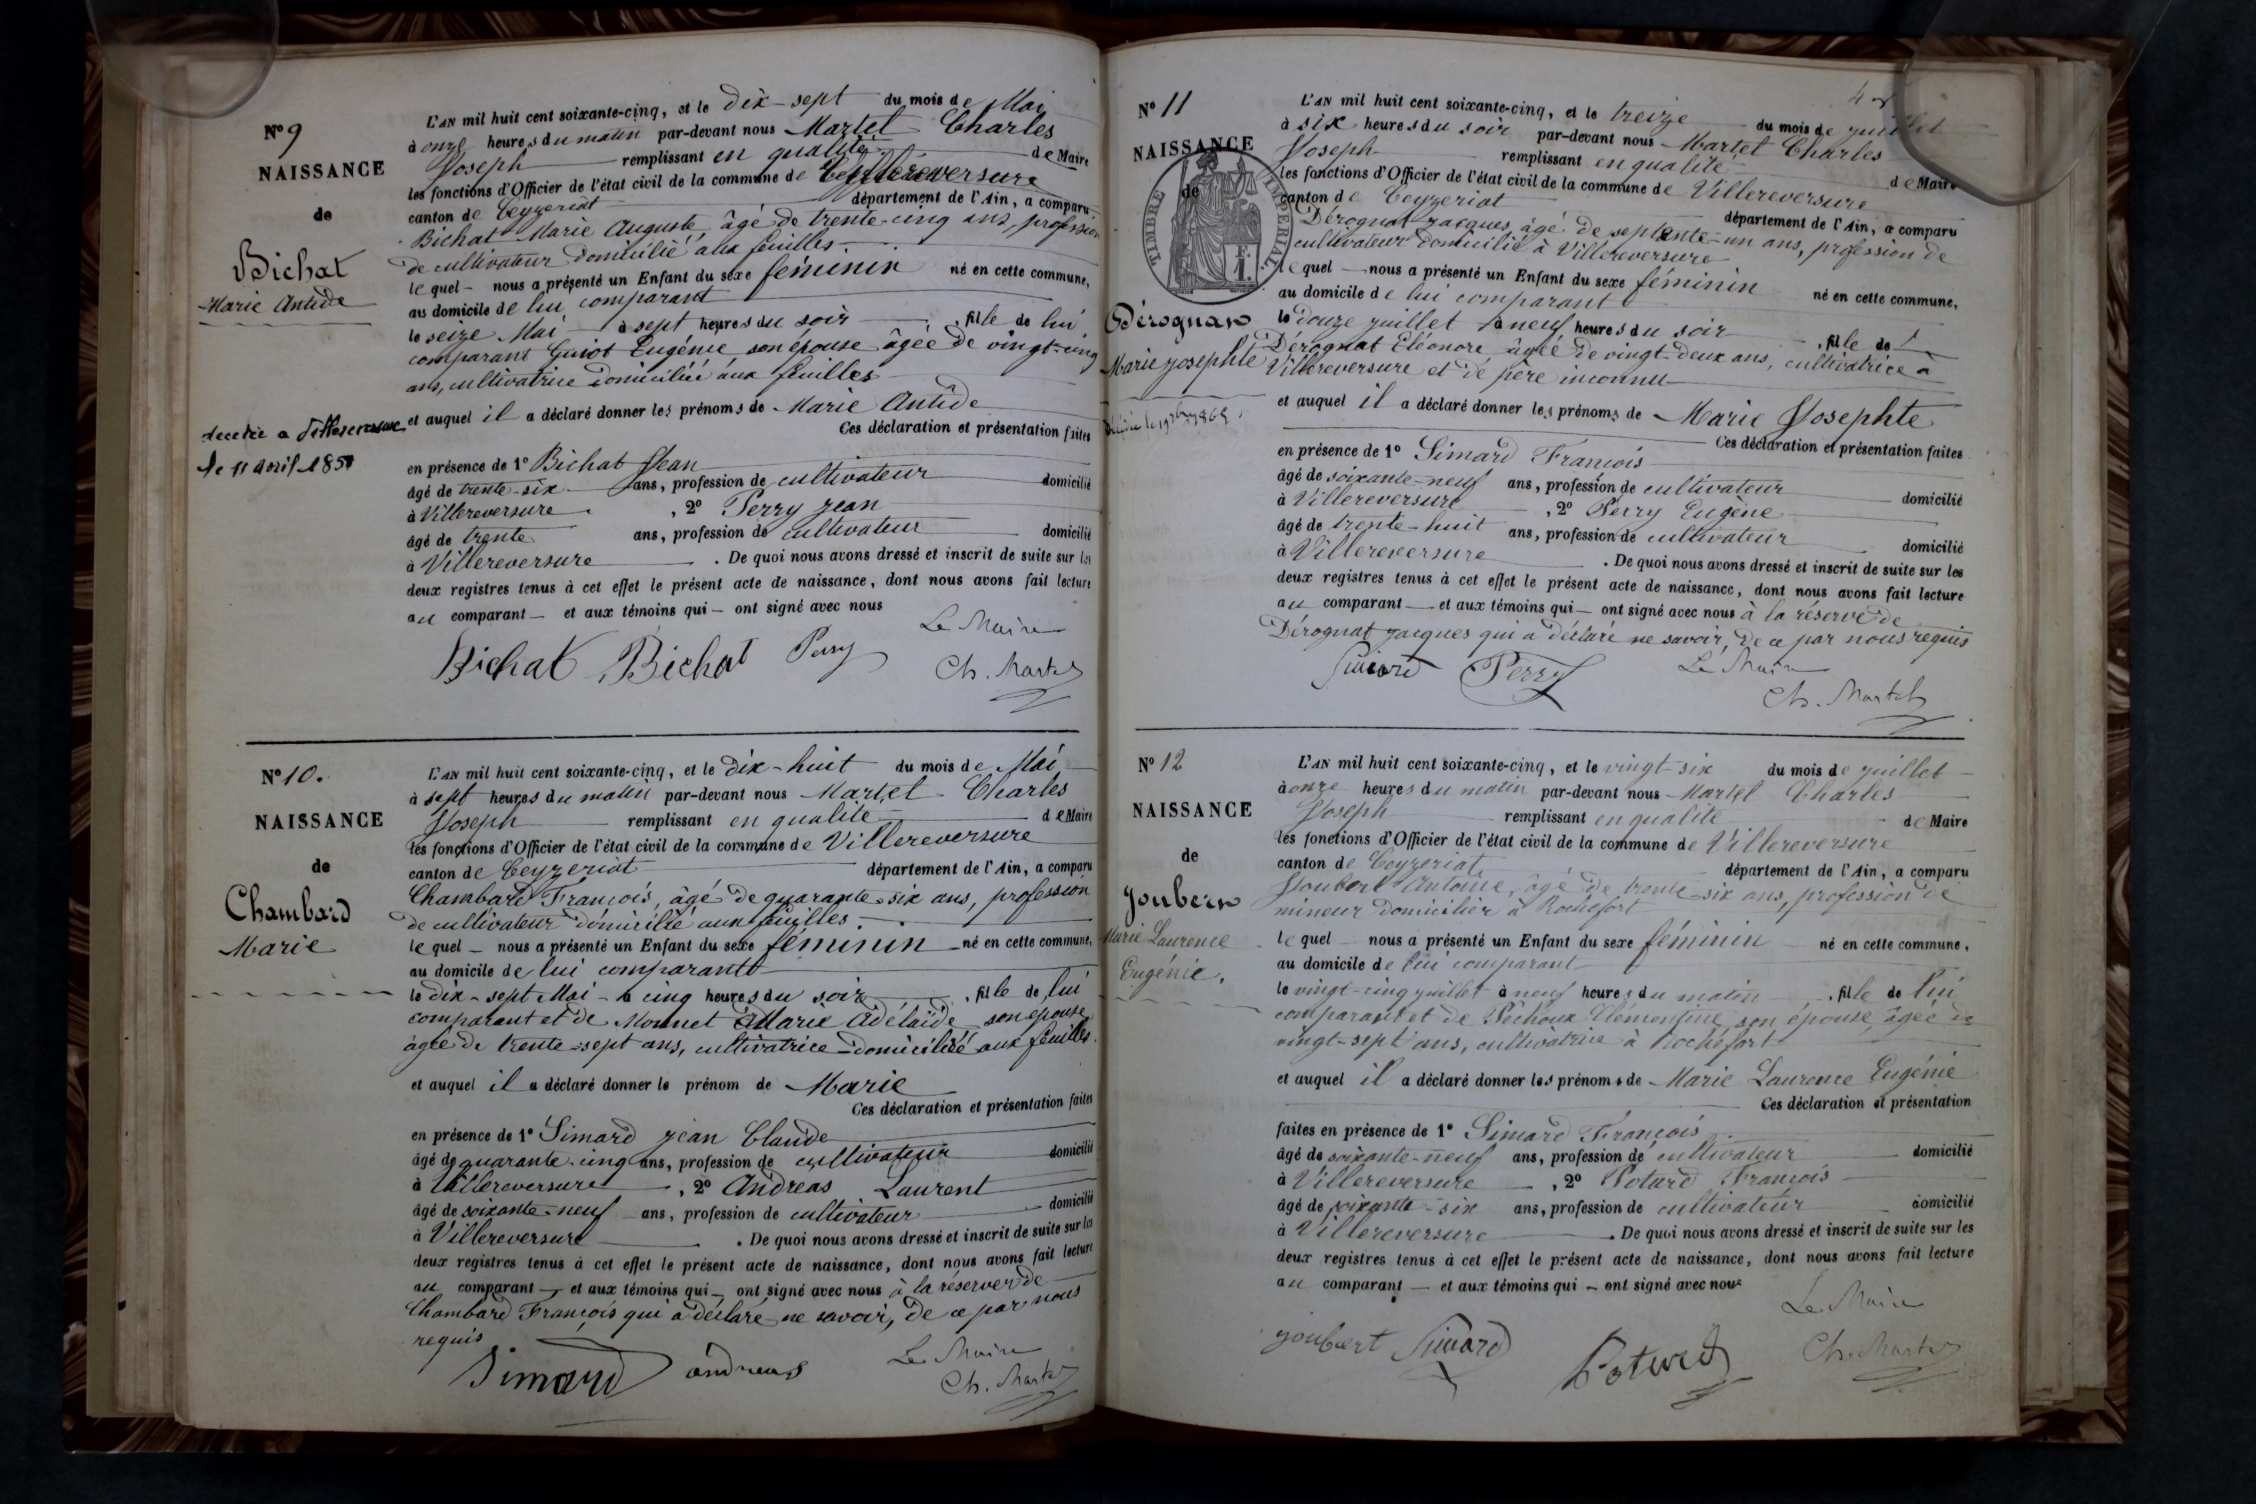 Nº 9
NAISSANCE
de
Bichat
Marie Antide
décédée à Villereversure
le 11 avril 185
L'AN mil huit cent soixante-cinq, et le dix-sept du mois de Mai
à onze heures du matin par-devant nous Martel Charles
Joseph remplissant en qualité de Maire
les fonctions d'Officier de l'état civil de la commune de Villereversure
canton de Ceyzeriat département de l'Ain, a comparu
Bichat Marie Auguste, âgé de trente-cinq ans, profession
de cultivateur domicilié aux feuilles.
lequel nous a présenté un Enfant du sexe féminin né en cette commune,
au domicile de lui comparant
le seize Mai à sept heures du soir, fille de lui
comparant Guiot Eugénie son épouse âgée de vingt-cinq
ans, cultivatrice domiciliée aux feuilles
et auquel il a déclaré donner les prénoms de Marie Antide
Ces déclaration et présentation faites
en présence de 1º Bichat Jean
âgé de trente-six ans, profession de cultivateur domicilié
à Villereversure, 2º Perry Jean
âgé de trente ans, profession de cultivateur domicilié
à Villereversure. De quoi nous avons dressé et inscrit de suite sur les
deux registres tenus à cet effet le présent acte de naissance, dont nous avons fait lecture
au comparant et aux témoins qui ont signé avec nous
Le Maire
Bichat Bichat Perry Ch. Martel
Nº 10.
NAISSANCE
de
Chambard
Marie
L'AN mil huit cent soixante-cinq, et le dix-huit du mois de Mai
à sept heures du matin par-devant nous Martel Charles
Joseph remplissant en qualité de Maire
les fonctions d'Officier de l'état civil de la commune de Villereversure
canton de Ceyzeriat département de l'Ain, a comparu
Chambard François, âgé de quarante-six ans, profession
de cultivateur domicilié aux feuilles.
lequel nous a présenté un Enfant du sexe féminin né en cette commune,
au domicile de lui comparant
le dix-sept Mai à cinq heures du soir, fille de lui
comparant et de Monnet Marie Adélaïde son épouse
âgée de trente-sept ans, cultivatrice domiciliée aux feuilles.
et auquel il a déclaré donner le prénom de Marie
Ces déclaration et présentation faites
en présence de 1º Simard Jean Claude
âgé de quarante-cinq ans, profession de cultivateur domicilié
à Villereversure, 2º Andreas Laurent
âgé de soixante-neuf ans, profession de cultivateur domicilié
à Villereversure. De quoi nous avons dressé et inscrit de suite sur les
deux registres tenus à cet effet le présent acte de naissance, dont nous avons fait lecture
au comparant et aux témoins qui ont signé avec nous à la réserve de
Chambard François qui a déclaré ne savoir, de ce par nous
requis
Le Maire
Simard andreas Ch. Martel
Nº 11
NAISSANCE
de
TIMBRE IMPÉRIAL
Dérognat
Marie Josephte
L'AN mil huit cent soixante-cinq, et le treize du mois de juillet
à six heures du soir par-devant nous Martel Charles
Joseph remplissant en qualité de Maire
les fonctions d'Officier de l'état civil de la commune de Villereversure
canton de Ceyzeriat département de l'Ain, a comparu
Dérognat Jacques, âgé de septante-un ans, profession de
cultivateur domicilié à Villereversure
lequel nous a présenté un Enfant du sexe féminin né en cette commune,
au domicile de lui comparant
le douze juillet à neuf heures du soir, fille de
Dérognat Eléonore âgée de vingt-deux ans, cultivatrice à
Villereversure et de père inconnu
et auquel il a déclaré donner les prénoms de Marie Josephte
Ces déclaration et présentation faites
en présence de 1º Simard François
âgé de soixante-neuf ans, profession de cultivateur domicilié
à Villereversure, 2º Perry Eugène
âgé de trente-huit ans, profession de cultivateur domicilié
à Villereversure. De quoi nous avons dressé et inscrit de suite sur les
deux registres tenus à cet effet le présent acte de naissance, dont nous avons fait lecture
au comparant et aux témoins qui ont signé avec nous à la réserve de
Dérognat Jacques qui a déclaré ne savoir, de ce par nous requis
Le Maire
Simard Perry Ch. Martel
Nº 12
NAISSANCE
de
Joubert
Marie Laurence
Eugénie.
L'AN mil huit cent soixante-cinq, et le vingt six du mois de juillet
à onze heures du matin par-devant nous Martel Charles
Joseph remplissant en qualité de Maire
les fonctions d'Officier de l'état civil de la commune de Villereversure
canton de Ceyzeriat département de l'Ain, a comparu
Joubert Antoine, âgé de trente-six ans, profession de
mineur domicilier à Rochefort
lequel nous a présenté un Enfant du sexe féminin né en cette commune,
au domicile de lui comparant
le vingt-cinq juillet à neuf heures du matin, fille de lui
comparant et de Péchoux Clémentine son épouse, âgée de
vingt-sept ans, cultivatrice à Rochefort
et auquel il a déclaré donner les prénoms de Marie Laurence Eugénie
Ces déclaration et présentation
faites en présence de 1º Simard François
âgé de soixante-neuf ans, profession de cultivateur domicilié
à Villereversure, 2º Poturd François
âgé de soixante-six ans, profession de cultivateur domicilié
à Villereversure. De quoi nous avons dressé et inscrit de suite sur les
deux registres tenus à cet effet le présent acte de naissance, dont nous avons fait lecture
au comparant et aux témoins qui ont signé avec nous
Le Maire
joubert Simard Poturd Ch. Martel